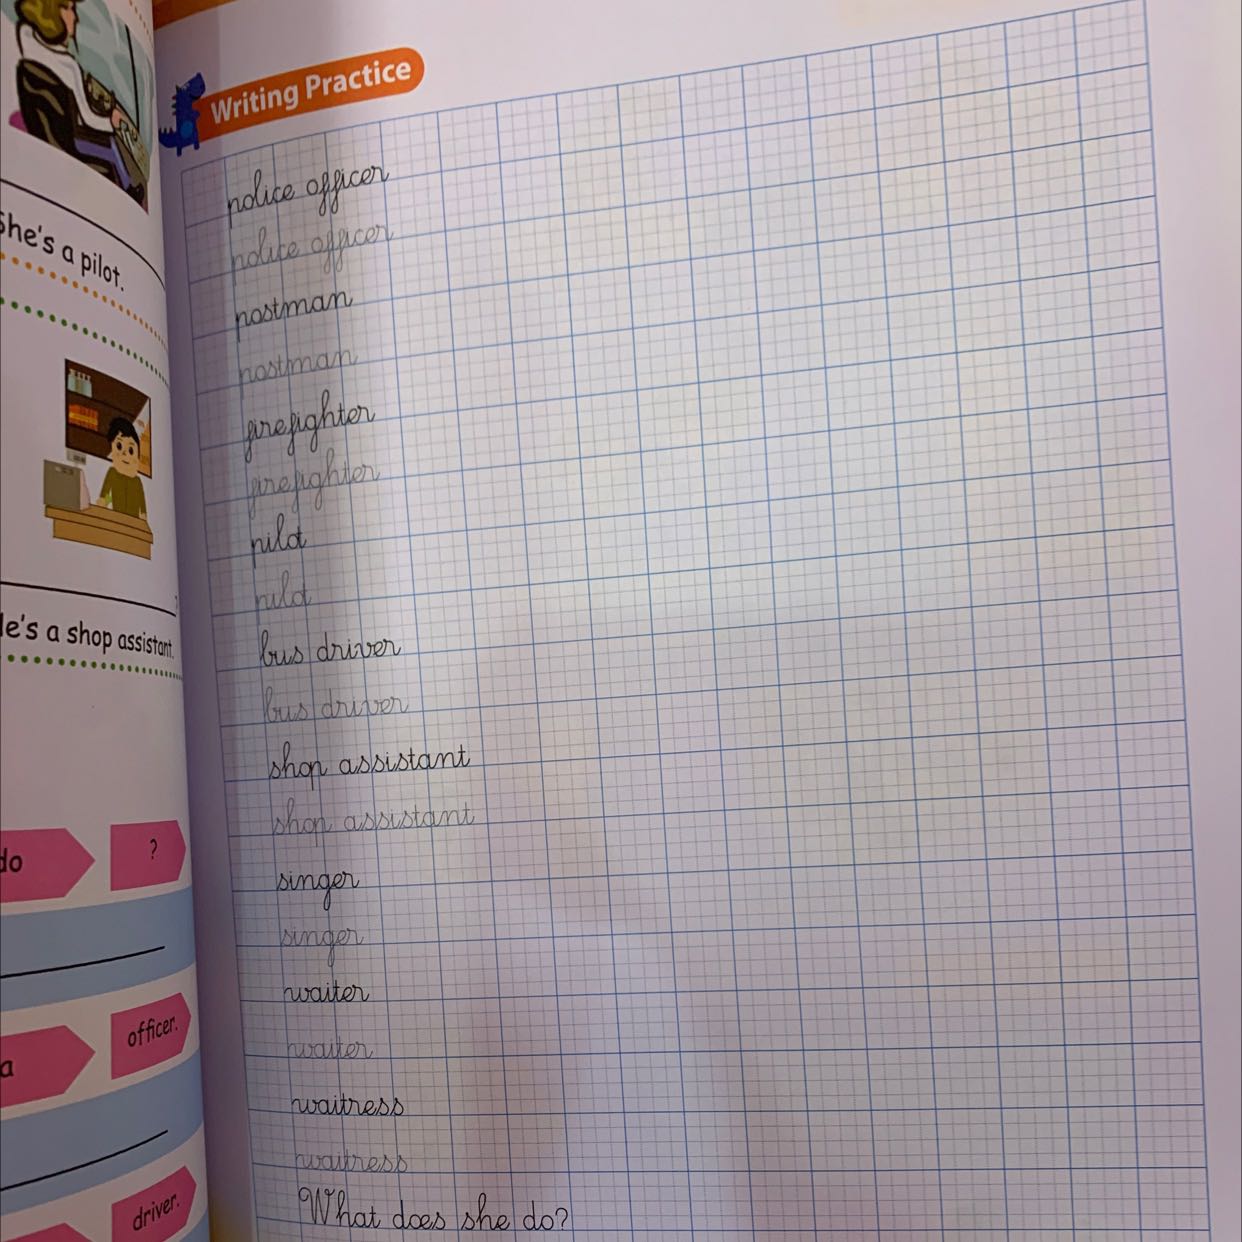 Writing Practice
police officer
police officer
postman
postman
firefighter
firefighter
pilot
pilot
bus driver
bus driver
shop assistant
shop assistant
singer
singer
waiter
waiter
waitress
waitress
What does she do?
She's a pilot.
le's a shop assistant.
do ?
a officer.
driver.